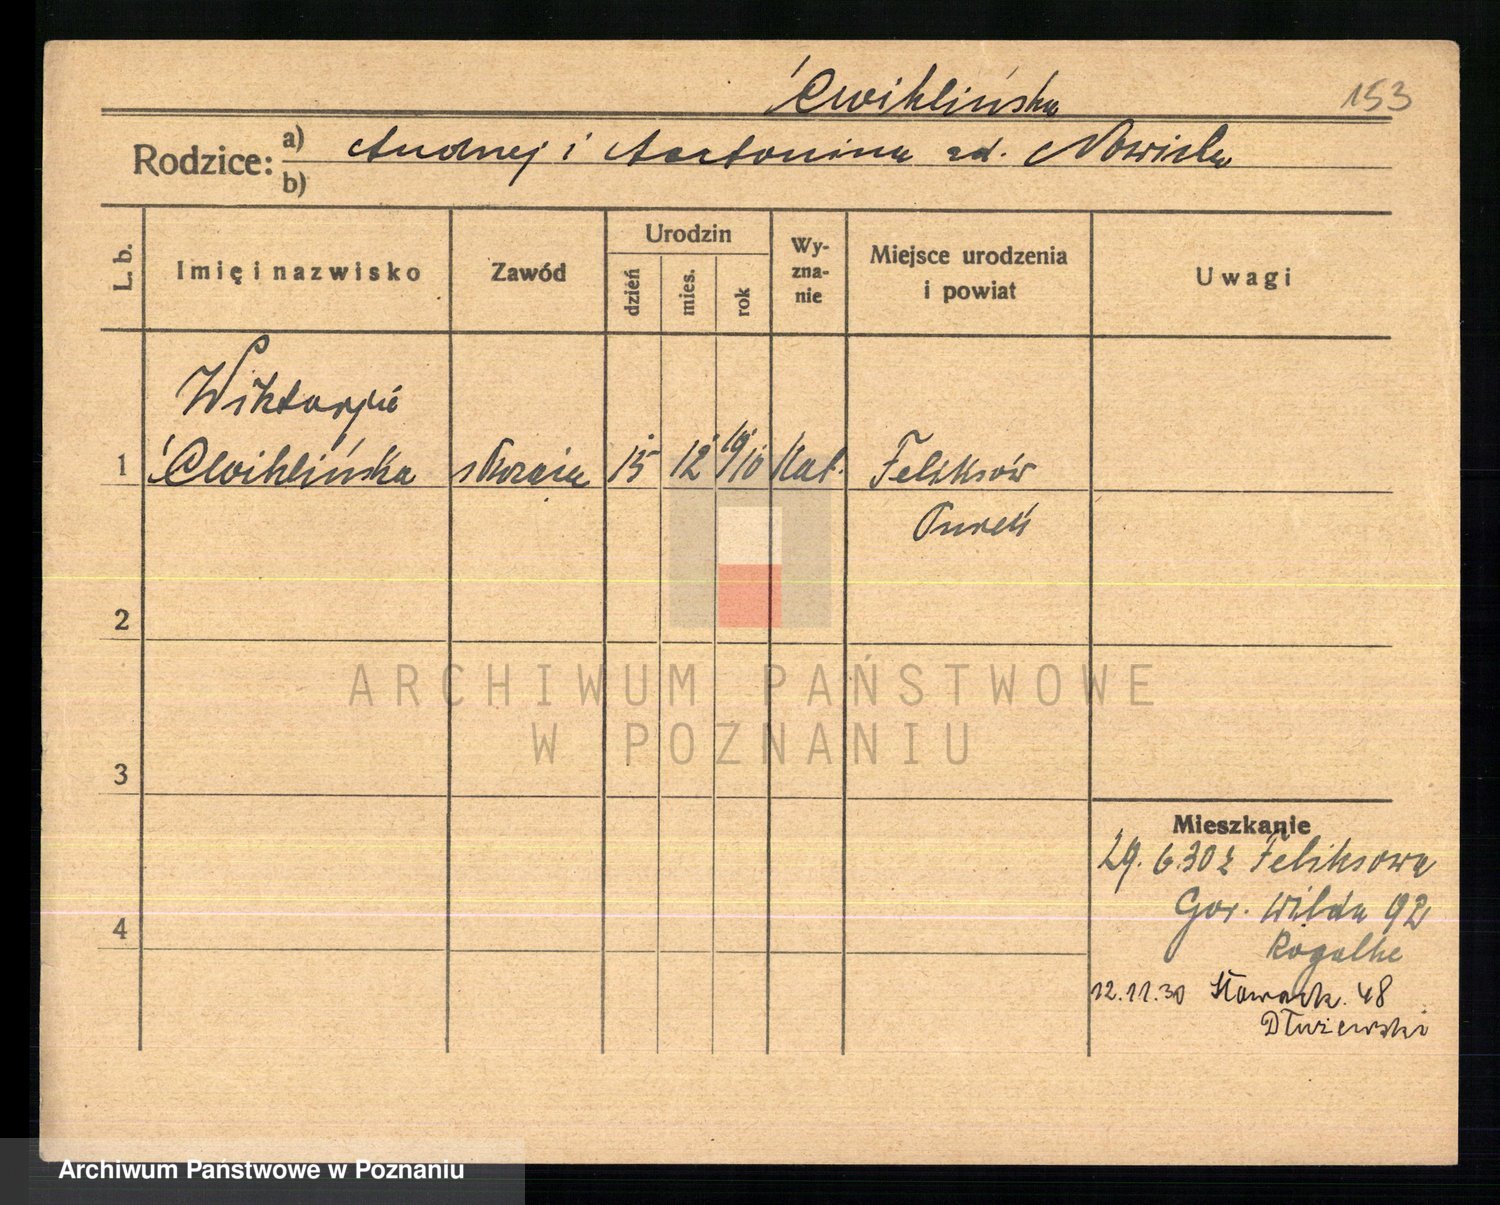 Ćwiklińska 153
Rodzice: a) Andrzej i Antonina zd. Nowicka
b)
L. b. Imię i nazwisko Zawód Urodzin dzień mies. rok Wyznanie Miejsce urodzenia i powiat Uwagi
Wiktorja
1 Ćwiklińska 15 12 1910 Kat. Feliksów
Turek
2
3
4
Mieszkanie
29.6.30 z Feliksowa
Gór. Wilda 92
Rogalke
12.11.30 Słowack. 48
Dłużewski
ARCHIWUM PAŃSTWOWE
W POZNANIU
Archiwum Państwowe w Poznaniu